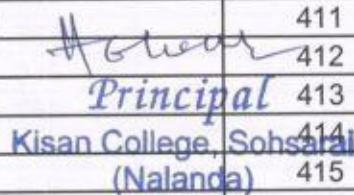 411
412
Principal 413
Kisan College, Sohsarai 414
(Nalanda) 415